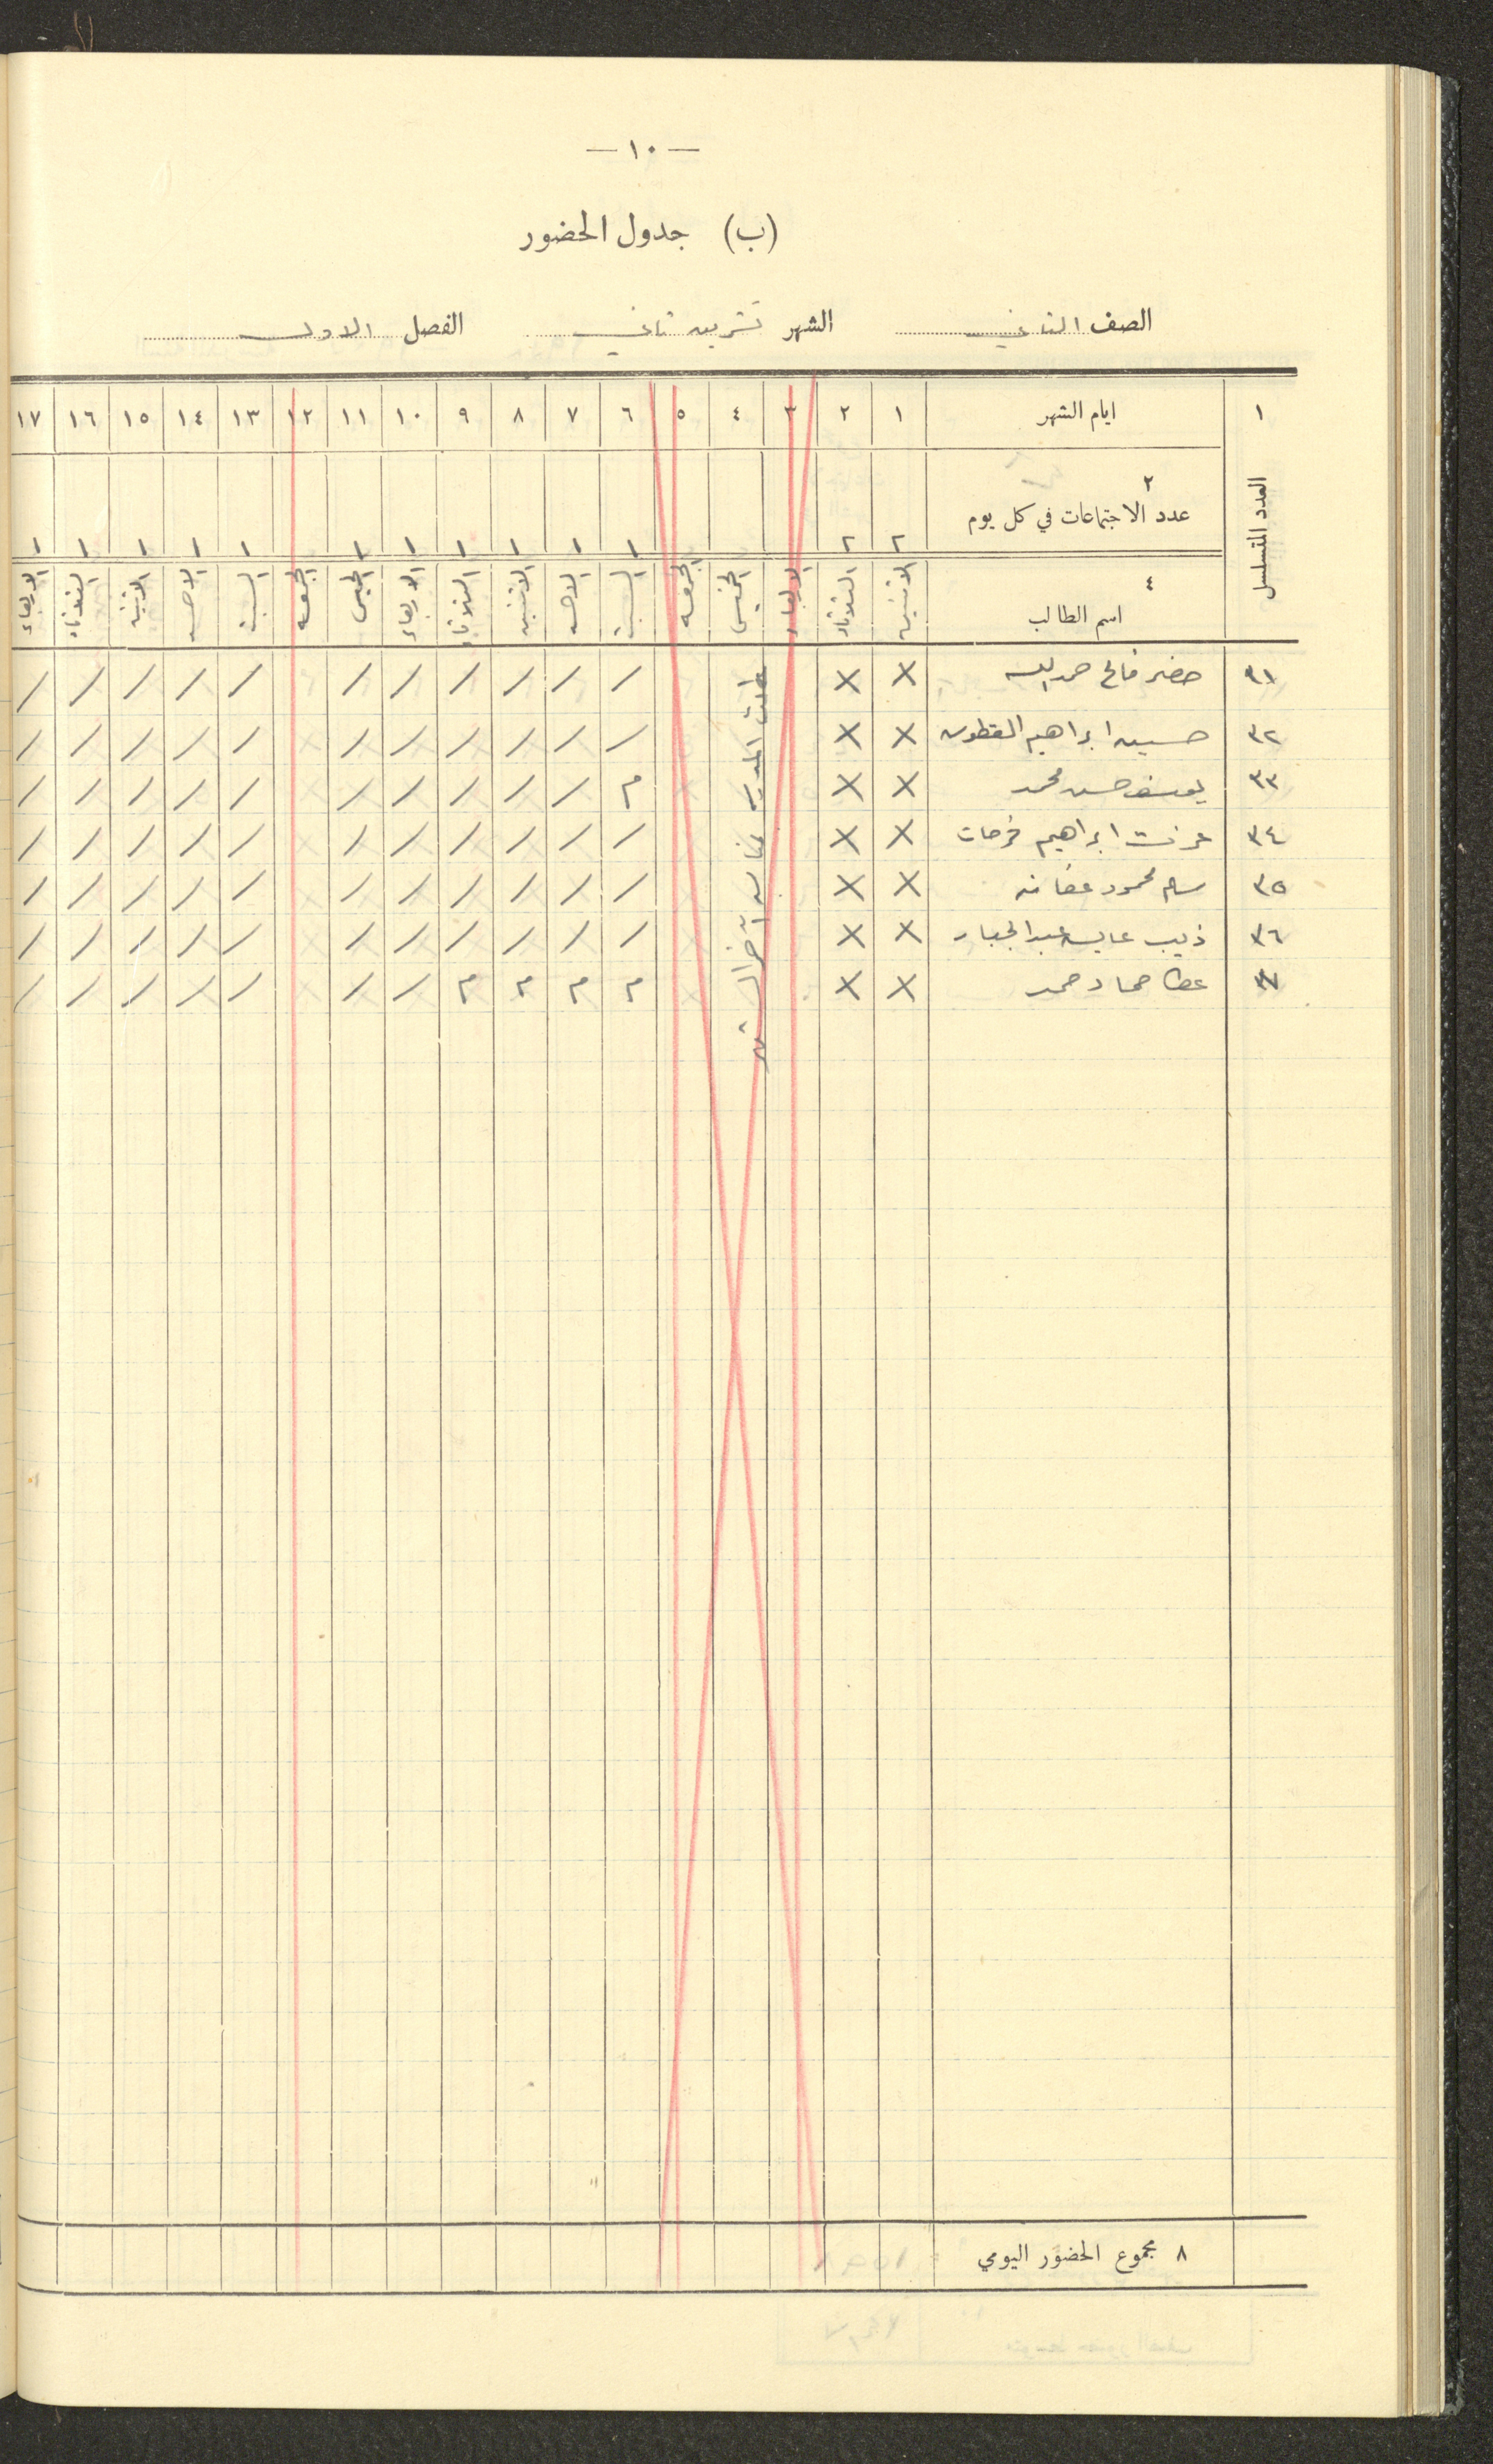 — ١٠ —
(ب) جدول الحضور
الصف الثاني الشهر تشرين ثاني الفصل الاول
١ ايام الشهر ١ ٢ ٣ ٤ ٥ ٦ ٧ ٨ ٩ ١٠ ١١ ١٢ ١٣ ١٤ ١٥ ١٦ ١٧
العدد المتسلسل
٢ عدد الاجتماعات في كل يوم ٢ ٢ ١ ١ ١ ١ ١ ١ ١ ١ ١ ١ ١
٤ اسم الطالب الاثنين الثلاثاء الاربعاء الخميس الجمعه السبت الاحد الاثنين الثلاثاء الاربعاء الخميس الجمعه السبت الاحد الاثنين الثلاثاء الاربعاء
٣١ خضر فالح حمدالله X X / / / / / / / / / / /
٣٢ حسين ابراهيم القطوس X X / / / / / / / / / / /
٣٣ يوسف حسن محمد X X م / / / / / / / / / /
٣٤ عزت ابراهيم فرحات X X / / / / / / / / / / /
٣٥ سالم محمود عفانه X X / / / / / / / / / / /
٣٦ ذيب عايد عبدالجبار X X / / / / / / / / / / /
٣٧ عطا حماد حمد X X م م م م / / / / / / /
عطلت المدرسه آخر الشهر
٨ مجموع الحضور اليومي